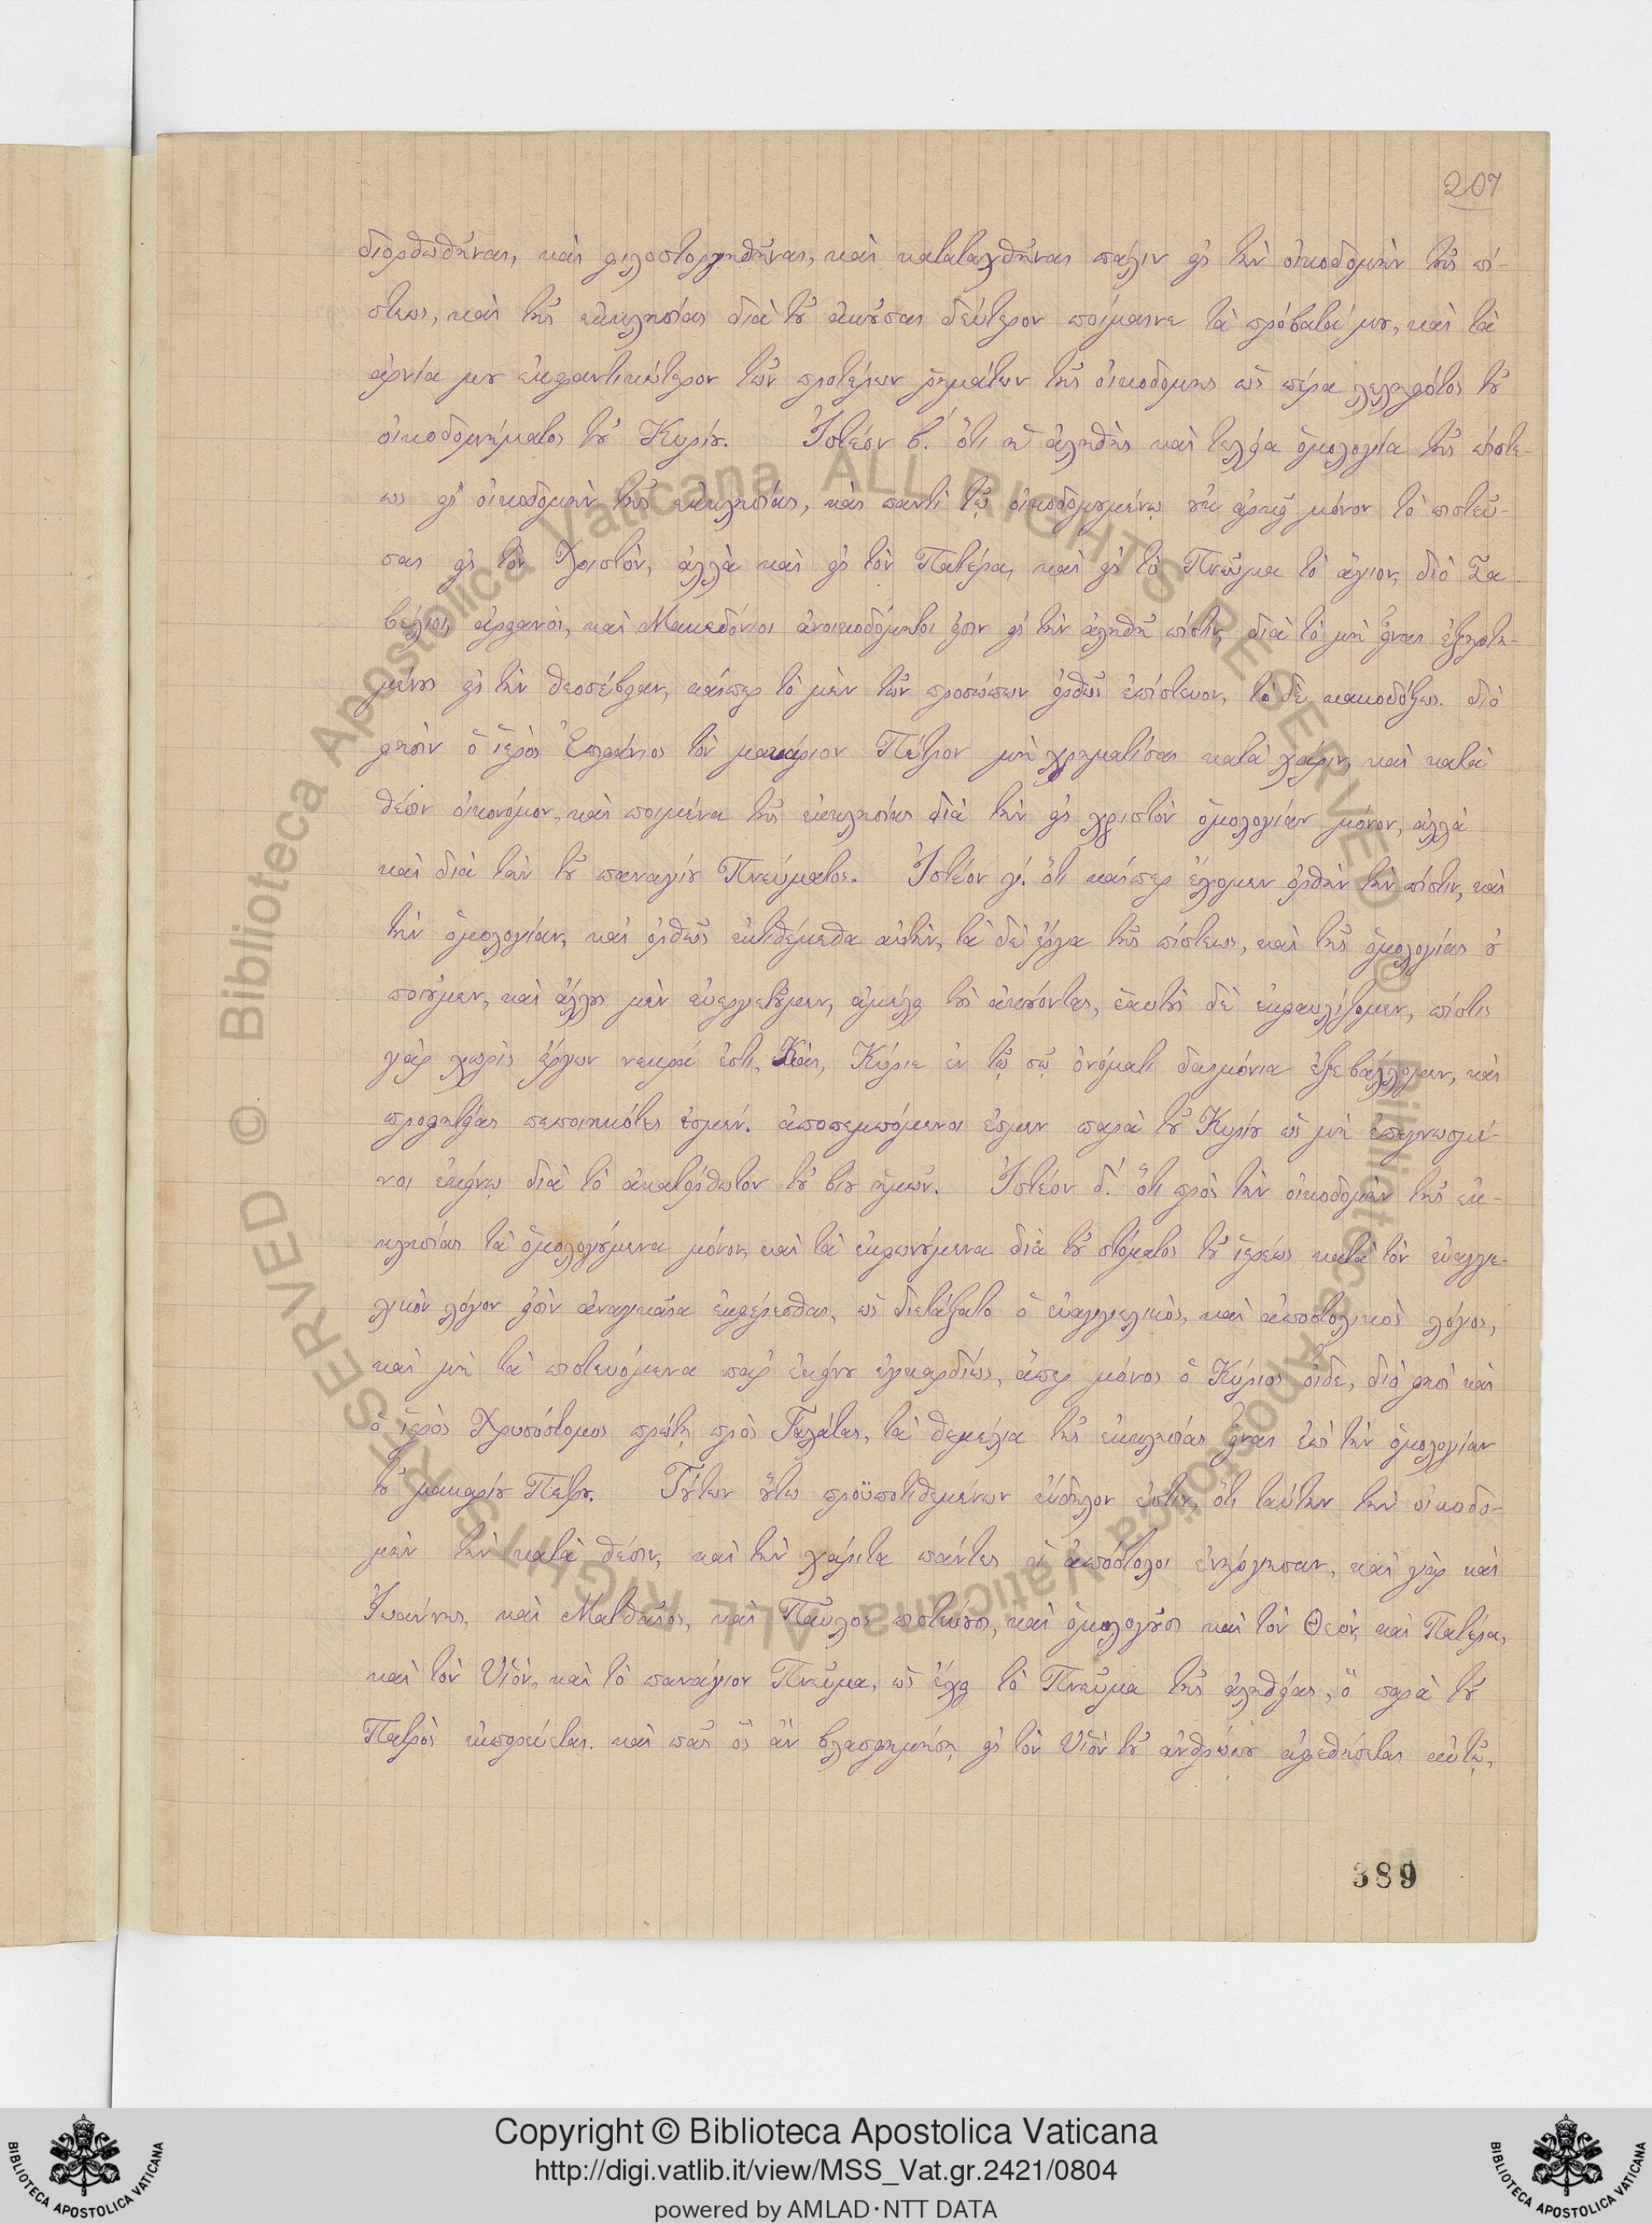 207
διορθωθῆναι, καὶ φιλοστοργηθῆναι, καὶ καταταχθῆναι πάλιν εἰς τὴν οἰκοδομὴν τῆς πί-
στεως, καὶ τῆς ἐκκλησίας διὰ τοῦ ἀκοῦσαι δεύτερον ποίμαινε τὰ πρόβατά μου, καὶ τὰ
ἀρνία μου ἐκφαντικώτερον τῶν προτέρων ῥημάτων τῆς οἰκοδομῆς ὡς πέρα τοῦ
οἰκοδομήματος τοῦ Κυρίου. Ἰστέον β. ὅτι ἡ ἀληθὴς καὶ τελεία ὁμολογία τῆς πίστε-
ως εἰς οἰκοδομὴν τῆς ἐκκλησίας, καὶ παντὶ τῷ οἰκοδομουμένῳ οὐκ ἀρκεῖ μόνον τὸ πιστεῦ-
σαι εἰς τὸν Χριστὸν, ἀλλὰ καὶ εἰς τὸν Πατέρα, καὶ εἰς τὸ Πνεῦμα τὸ ἅγιον, διὸ Σα-
βέλιοι, ἀρειανοὶ, καὶ Μακεδόνιοι ἀνοικοδόμητοι εἰσιν εἰς τὴν ἀληθῆ πίστιν, διὰ τὸ μὴ εἶναι
εἰς τὴν θεοσέβειαν, καίπερ τὸ μὲν τῶν προσώπων ὀρθῶς ἐπίστευον, τὸ δὲ κακοδόξως. διὸ
φησὶν ὁ ἱερὸς Ἐπιφάνιος τὸν μακάριον Πέτρον μὴ χρηματίσαι κατὰ χάριν, καὶ κατὰ
θέσιν οἰκονόμον, καὶ ποιμένα τῆς ἐκκλησίας διὰ τὴν εἰς χριστὸν ὁμολογίαν μόνον, ἀλλὰ
καὶ διὰ τὴν τοῦ παναγίου Πνεύματος. Ἰστέον γ΄. ὅτι καίπερ ἔχομεν ὀρθὴν τὴν πίστιν, καὶ
τὴν ὁμολογίαν, καὶ ὀρθῶς ἐκτιθέμεθα αὐτὴν, τὰ δὲ ἔργα τῆς πίστεως, καὶ τῆς ὁμολογίας οὐ
ποιοῦμεν, καὶ ἄλλους μὲν εὐεργετοῦμεν, ἀμέλει τοὺς ἀκούοντας, ἑαυτοὺς δὲ ἐκφαυλίζομεν, πίστις
γὰρ χωρὶς ἔργων νεκρά ἐστι, Καὶ, Κύριε ἐν τῷ σῷ ὀνόματι δαιμόνια ἐξεβάλλομεν, καὶ
προφητείας πεποιηκότες ἐσμέν. ἀποπεμπόμενοι ἐσμεν παρὰ τοῦ Κυρίου ὡς μὴ ἐπεγνωσμέ-
νοι ἐκείνῳ διὰ τὸ ἀκατόρθωτον τοῦ βίου ἡμῶν. Ἰστέον δ΄. ὅτι πρὸς τὴν οἰκοδομὴν τῆς ἐκ-
κλησίας τὰ ὁμολογούμενα μόνον, καὶ τὰ ἐκφωνούμενα διὰ τοῦ στόματος τοῦ ἱερέως κατὰ τὸν εὐαγγε-
λικὸν λόγον εἰσὶν ἀναγκαῖα ἐκφέρεσθαι, ὡς διετάξατο ὁ εὐαγγελικὸς, καὶ ἀποστολικὸς λόγος,
καὶ μὴ τὰ πιστευόμενα παρ' ἐκείνου ἐγκαρδίως, ἅπερ μόνος ὁ Κύριος οἶδε, διὸ φησὶ καὶ
ὁ ἱερὸς Χρυσόστομος πρώτῃ πρὸς Γαλάτας, τὰ θεμέλια τῆς ἐκκλησίας εἶναι ἐπὶ τὴν ὁμολογίαν
τοῦ μακαρίου Πέτρου. Τούτων οὕτω προϋποτιθεμένων εὔδηλον ἐστιν, ὅτι ταύτην τὴν οἰκοδο-
μὴν τὴν κατὰ θέσιν, καὶ τὴν χάριτα πάντες οἱ ἀπόστολοι ἐνήργησαν, καὶ γὰρ καὶ
Ἰωάννης, καὶ Ματθαῖος, καὶ Παῦλος πιστεύουσι, καὶ ὁμολογοῦσι καὶ τὸν Θεὸν, καὶ Πατέρα,
καὶ τὸν Υἱὸν, καὶ τὸ πανάγιον Πνεῦμα, ὡς ἔχει τὸ Πνεῦμα τῆς ἀληθείας, ὃ παρὰ τοῦ
Πατρὸς ἐκπορεύεται. καὶ πᾶς ὃς ἂν βλασφημήσῃ εἰς τὸν Υἱὸν τοῦ ἀνθρώπου ἀφεθήσεται αὐτῷ,
389
© Biblioteca Apostolica Vaticana ALL RIGHTS RESERVED
© Biblioteca Apostolica Vaticana ALL RIGHTS RESERVED
Copyright © Biblioteca Apostolica Vaticana
http://digi.vatlib.it/view/MSS_Vat.gr.2421/0804
powered by AMLAD·NTT DATA
BIBLIOTECA APOSTOLICA VATICANA
BIBLIOTECA APOSTOLICA VATICANA